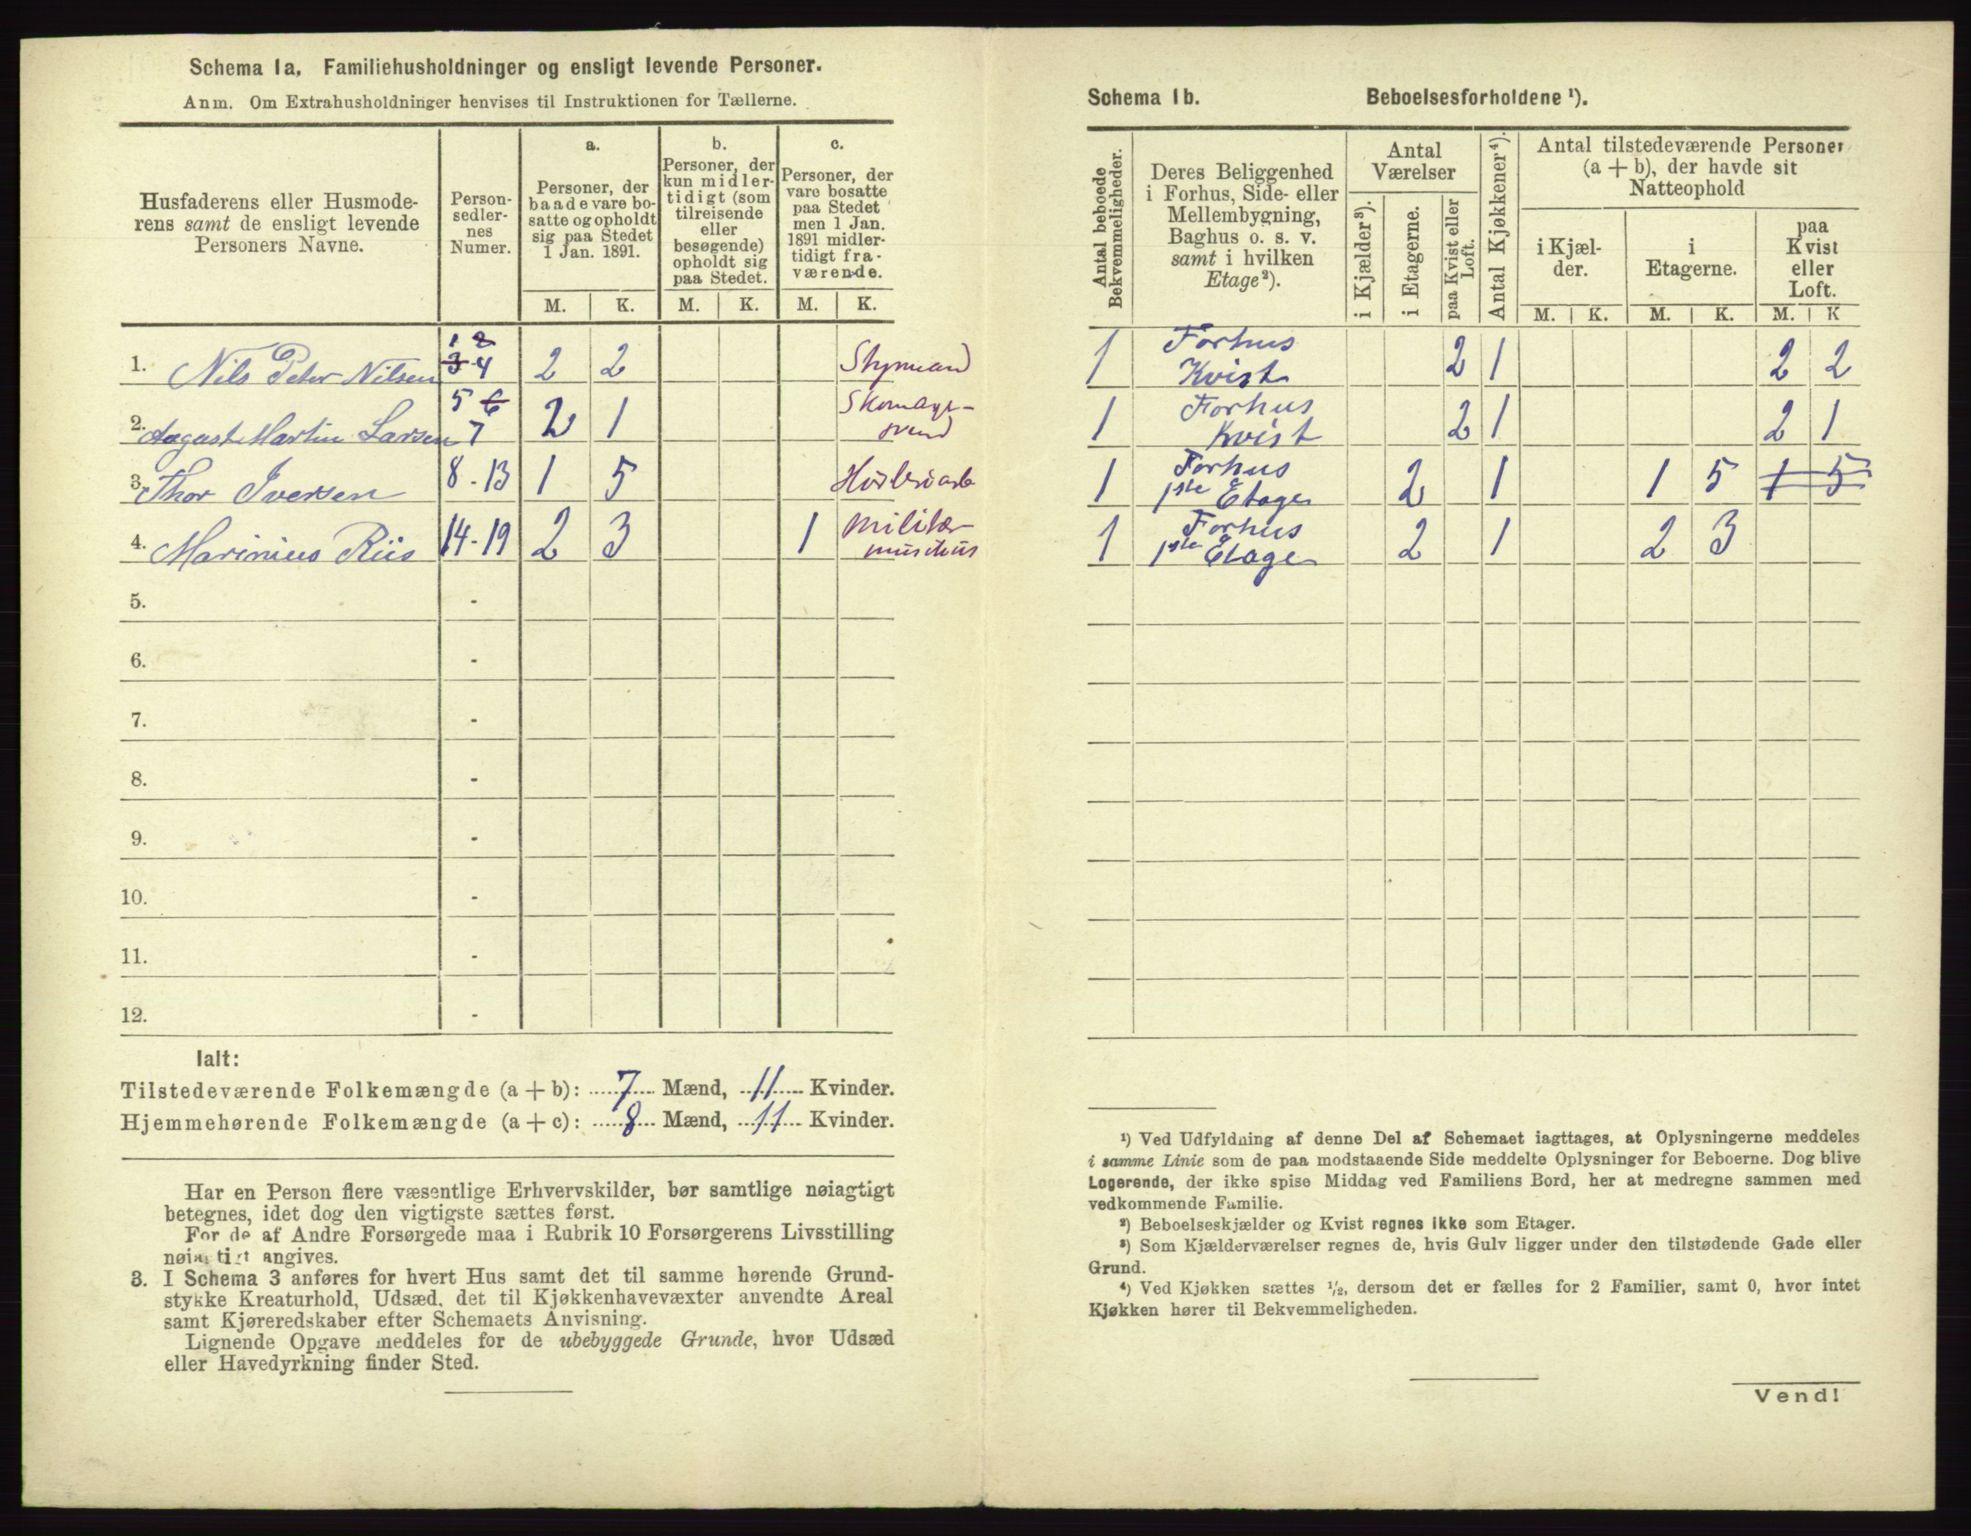 Schema 1a. Familiehusholdninger og ensligt levende Personer.
Anm. Om Extrahusholdninger henvises til Instruktionen for Tællerne.
Husfaderens eller Husmode-
rens samt de ensligt levende
Personers Navne.
Person-
sedler-
nes
Numer.
a.
Personer, der
baade vare bo-
satte og opholdt
sig paa Stedet
1 Jan. 1891.
b.
Personer, der
kun midler-
tidigt (som
tilreisende
eller
besøgende)
opholdt sig
paa Stedet.
c.
Personer, der
vare bosatte
paa Stedet
men 1 Jan.
1891 midler-
tidigt fra-
værende.
M. K. M. K. M. K.
1. Nils Peter Nilsen 1 2 3-4 2 2 Styrmand
2. August Martin Larsen 5 6 7 2 1 Skomager-
svend
3. Thor Iversen 8-13 1 5
4. Marinius Riis 14-19 2 3 1 Militær-
musikus
5. -
6. -
7. -
8. -
9. -
10. -
11. -
12. -
Ialt:
Tilstedeværende Folkemængde (a + b): 7 Mænd, 11 Kvinder.
Hjemmehørende Folkemængde (a + c): 8 Mænd, 11 Kvinder.
Har en Person flere væsentlige Erhvervskilder, bør samtlige nøiagtigt
betegnes, idet dog den vigtigste sættes først.
For de af Andre Forsørgede maa i Rubrik 10 Forsørgerens Livsstilling
nøiagtigt angives.
3. I Schema 3 anføres for hvert Hus samt det til samme hørende Grund-
stykke Kreaturhold, Udsæd, det til Kjøkkenhavevæxter anvendte Areal
samt Kjøreredskaber efter Schemaets Anvisning.
Lignende Opgave meddeles for de ubebyggede Grunde, hvor Udsæd
eller Havedyrkning finder Sted.
Schema 1b. Beboelsesforholdene ¹).
Antal beboede
Bekvemmeligheder.
Deres Beliggenhed
i Forhus, Side- eller
Mellembygning,
Baghus o. s. v.
samt i hvilken
Etage²).
Antal
Værelser
i Kjælder³).
i Etagerne.
paa Kvist eller
Loft.
Antal Kjøkkener⁴).
Antal tilstedeværende Personer
(a + b), der havde sit
Natteophold
i Kjæl-
der.
i
Etagerne.
paa
Kvist
eller
Loft.
M. K. M. K. M. K
1 Forhus
Kvist 2 1 2 2
1 Forhus
Kvist 2 1 2 1
1 Forhus
1ste Etage 2 1 1 5 1 5
1 Forhus
1ste Etage 2 1 2 3
¹) Ved Udfyldning af denne Del af Schemaet iagttages, at Oplysningerne meddeles
i samme Linie som de paa modstaaende Side meddelte Oplysninger for Beboerne. Dog blive
Logerende, der ikke spise Middag ved Familiens Bord, her at medregne sammen med
vedkommende Familie.
²) Beboelseskjælder og Kvist regnes ikke som Etager.
³) Som Kjælderværelser regnes de, hvis Gulv ligger under den tilstødende Gade eller
Grund.
⁴) Ved Kjøkken sættes ½, dersom det er fælles for 2 Familier, samt 0, hvor intet
Kjøkken hører til Bekvemmeligheden.
Vend!